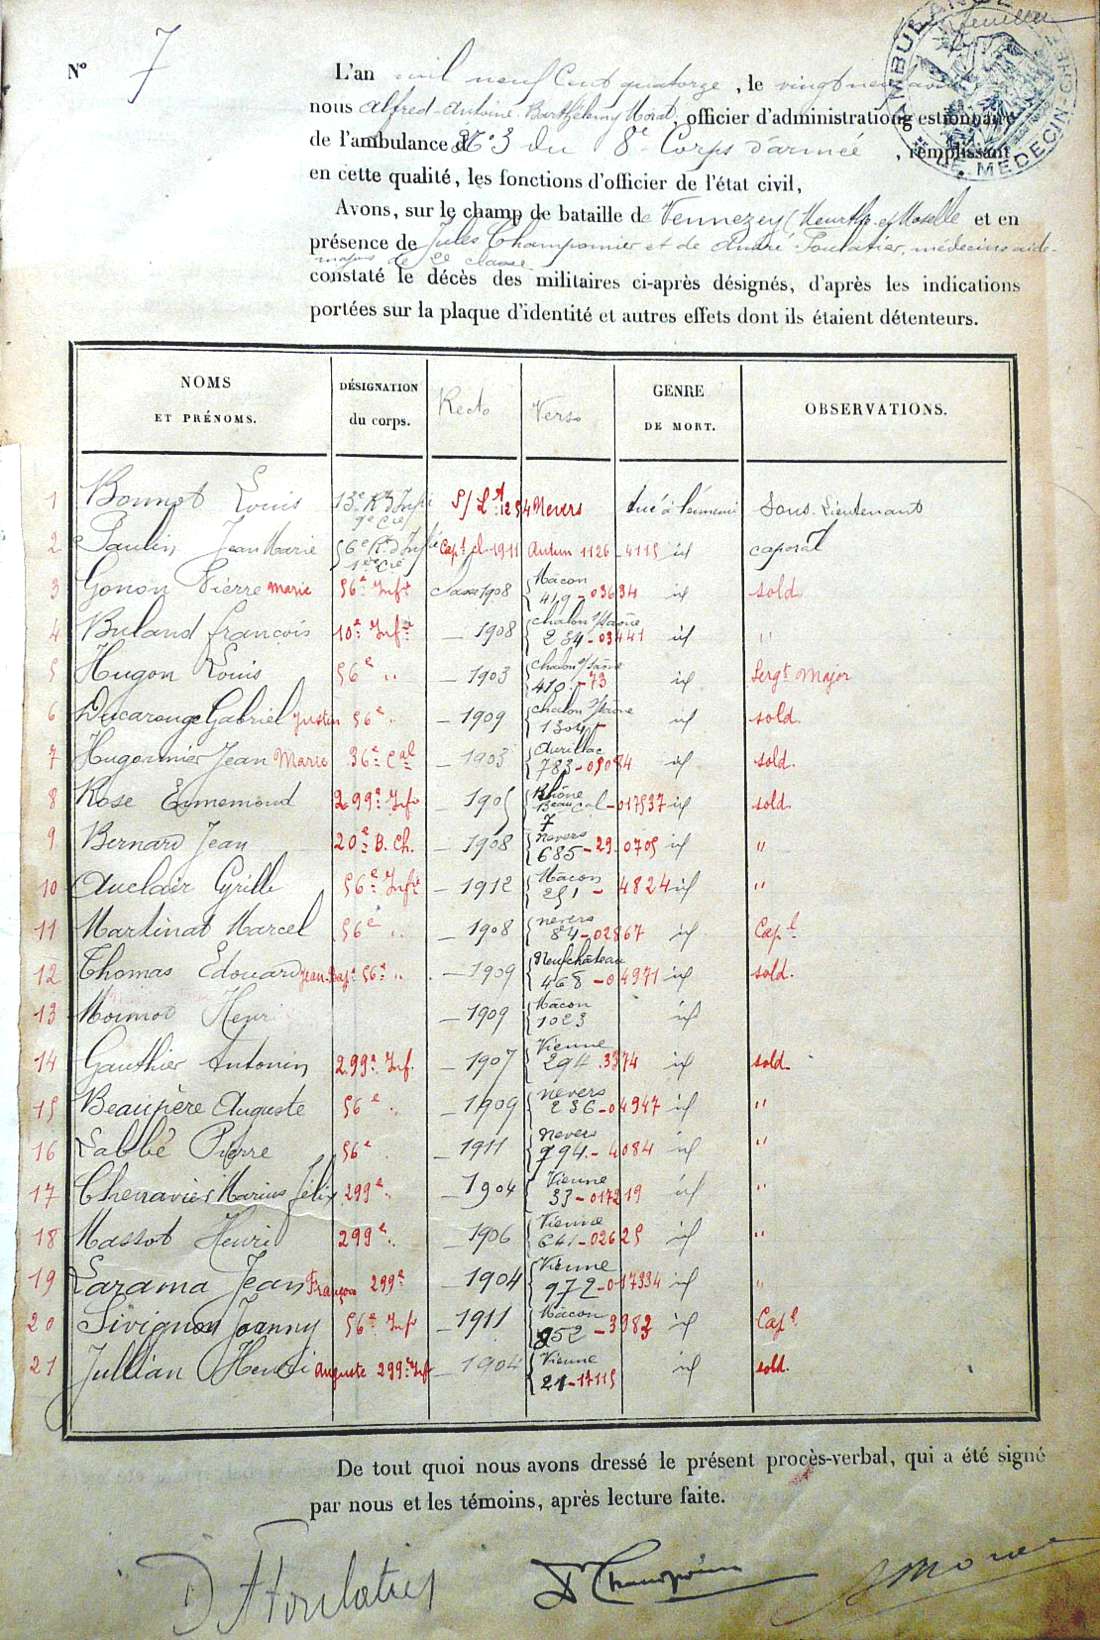 N° 7
L'an mil neuf Cent quatorze, le vingt neuf
nous Alfred-Antoine-Barthélemy Morat, officier d'administration gestionnaire
de l'ambulance N°3 du 8e Corps d'armée, remplissant
en cette qualité, les fonctions d'officier de l'état civil,
Avons, sur le champ de bataille de Vennezey (Meurthe et Moselle et en
présence de Jules Champomier et de André Foulatier, médecins aide-
majors de 2e classe
constaté le décès des militaires ci-après désignés, d'après les indications
portées sur la plaque d'identité et autres effets dont ils étaient détenteurs.
AMBULANCE
MÉDECIN-CHEF
NOMS ET PRÉNOMS. DÉSIGNATION du corps. Recto Verso GENRE DE MORT. OBSERVATIONS.
1 Bonnot Louis 13e Rt d'Infie 9e Cie S/Lt 1254 Nevers tué à l'ennemi Sous-Lieutenant
2 Paulin Jean Marie 56e Rt d'Infie 1ère Cie Capl cl-1911 Autun 1126-4115 id caporal
3 Gonon Pierre Marie 56e Infie classe 1908 Mâcon 419-03634 id sold.
4 Buland françois 10e Infie — 1908 chalon s/saône 234-03441 id "
5 Hugon Louis 56e " — 1903 chalon s/saône 410-73 id Sergt Major
6 Ducarouge Gabriel Justin 56e " — 1909 chalon s/saône 1304 id sold.
7 Hugonnier Jean Marie 36e Cal — 1903 Aurillac 783-09084 id sold.
8 Rose Ennemond 299e Infe — 1905 Rhône 7 -017537 id sold.
9 Bernard Jean 20e B. Ch. — 1908 nevers 685-29-0705 id "
10 Auclair Cyrille 56e Infie — 1912 Mâcon 251-4824 id "
11 Martinat Marcel 56e " — 1908 nevers 84-02867 id Capl
12 Thomas Edouard Jean-Bapt 56e " — 1909 Neufchâteau 468-04971 id sold.
13 Moinot Henri — 1909 Mâcon 1023 id
14 Gauthier Antonin 299e Inf. — 1907 Vienne 294.3374 id sold.
15 Beaupère Auguste 56e " — 1909 nevers 236-04947 id "
16 Labbé Pierre 56e — 1911 nevers 994-4084 id "
17 Chenavier Marius félix 299e " — 1904 Vienne 33-017219 id "
18 Massot Henri 299e " — 1906 Vienne 641-02625 id "
19 Larama Jean François 299e — 1904 Vienne 972-017334 id "
20 Sivignon Joanny 56e Infe — 1911 Mâcon 852-3983 id Capl
21 Jullian Henri Auguste 299e Inf — 1904 Vienne 21-17115 id sold.
De tout quoi nous avons dressé le présent procès-verbal, qui a été signé
par nous et les témoins, après lecture faite.
Dr A Foulatier Dr Champomier A Morat